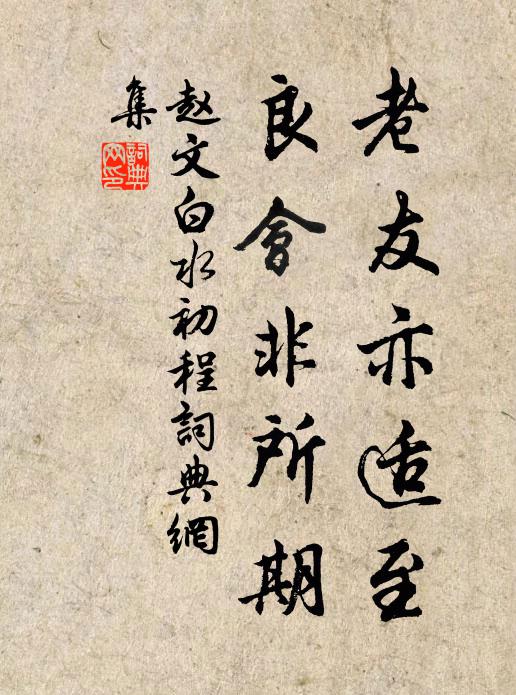 老友亦适至
良會非所期
赵文白水初程詞典網
集
詞典
网印